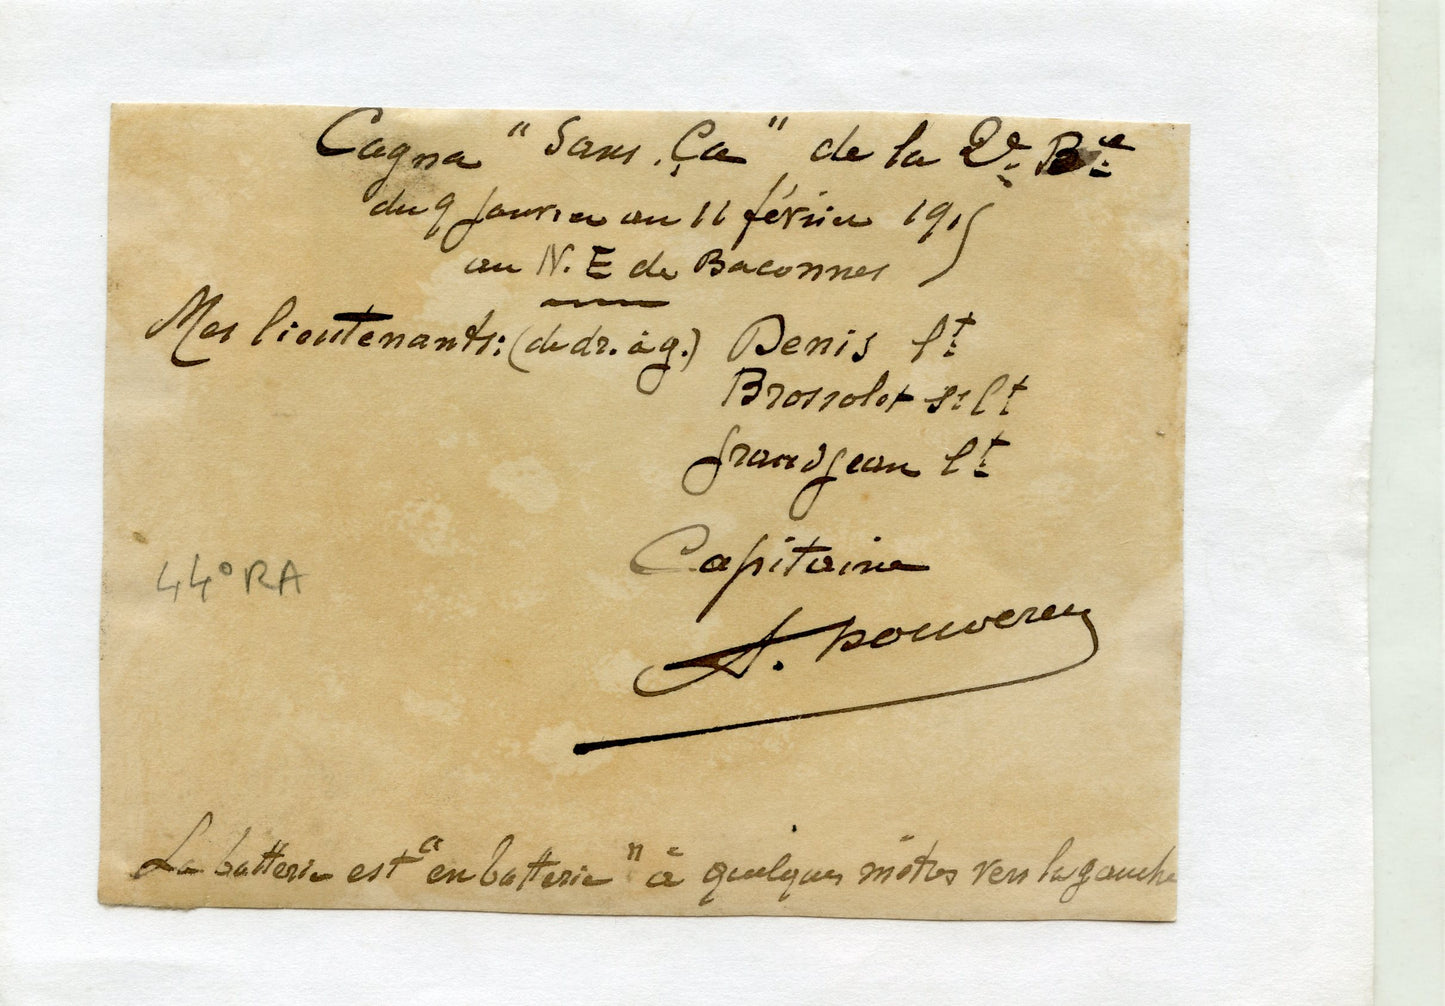 Cagna "Sans Ça" de la 2e Bie
du 9 janvier au 11 février 1915
au N.E de Baconnes
Mes lieutenants: (de dr. à g.) Denis lt
Brossolet ss lt
Grandjean lt
Capitaine
44° RA
A. Pouverey
La batterie est "en batterie" à quelques mètres vers la gauche